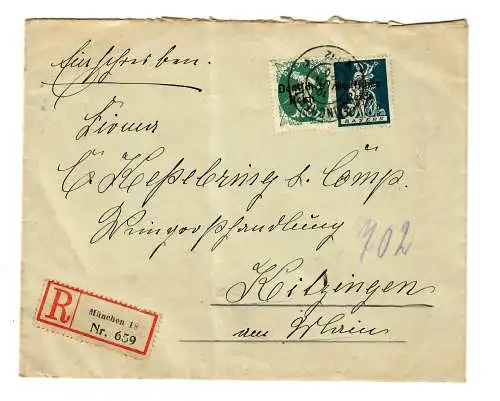 Einschreiben.
Deutsches Reich
Deutsches Reich
BAYERN
Firma
C. Keßelring & Comp.
Weingroßhandlung
702
Kitzingen
am Main
R
München 18
Nr. 659